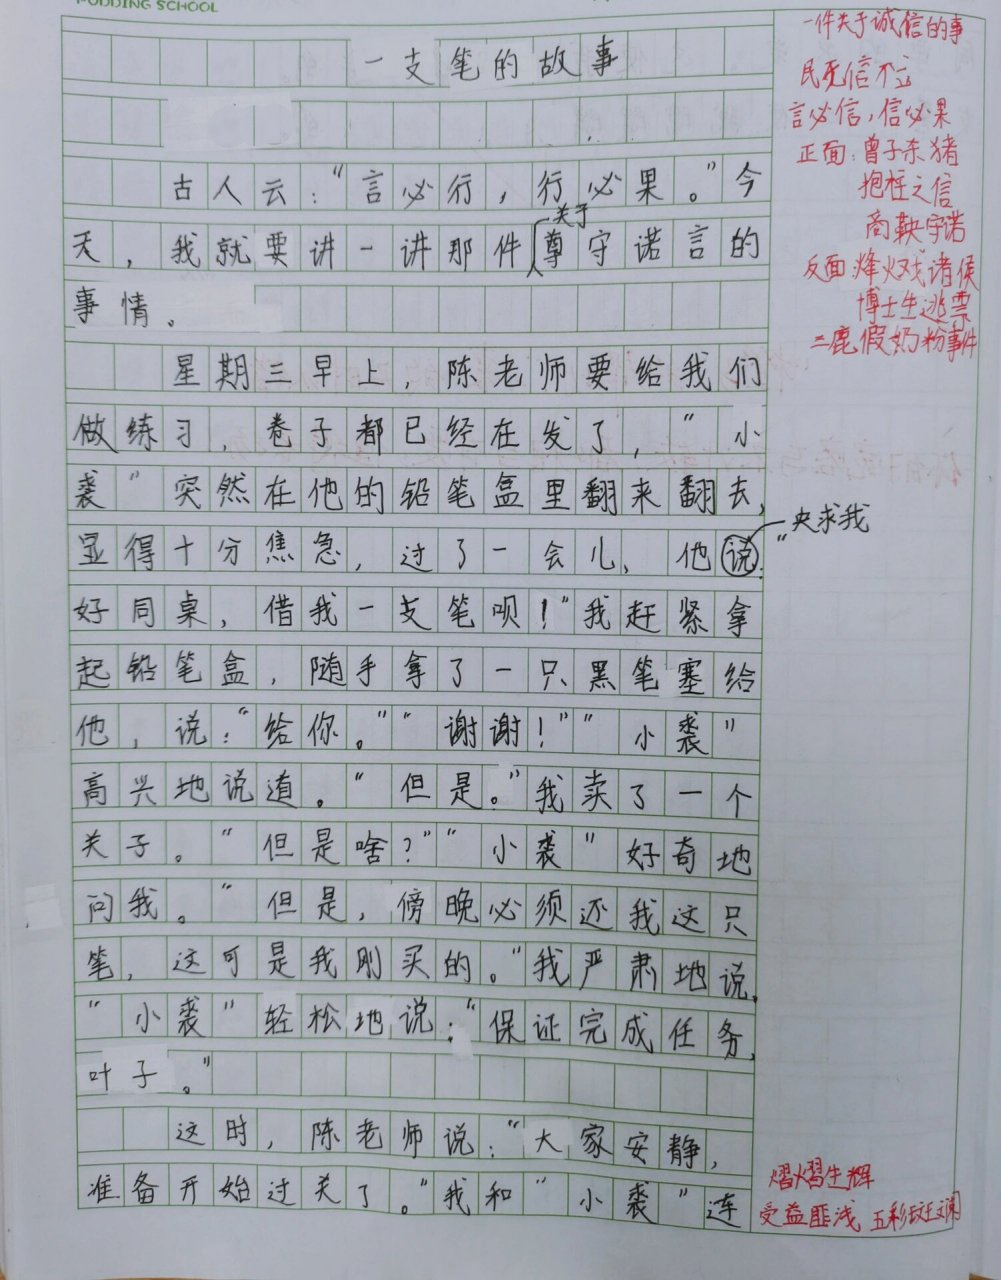 PUDDING SCHOOL
一支笔的故事
古人云:"言必行,行必果。"今
关于
天,我就要讲一讲那件尊守诺言的
事情。
星期三早上,陈老师要给我们
做练习,卷子都已经在发了,"小
裘"突然在他的铅笔盒里翻来翻去,
显得十分焦急,过了一会儿、他说:"
央求我
好同桌,借我一支笔呗!"我赶紧拿
起铅笔盒,随手拿了一只黑笔塞给
他,说:"给你。""谢谢!""小裘"
高兴地说道。"但是。"我卖了一个
关子。"但是啥?""小裘"好奇地
问我。"但是,傍晚必须还我这只
笔,这可是我刚买的。"我严肃地说。
"小裘"轻松地说:"保证完成任务,
叶子。"
这时,陈老师说:"大家安静,
准备开始过关了。"我和"小裘"连
一件关于诚信的事
民无信不立
言必信,信必果
正面:曾子杀猪
抱柱之信
商鞅守诺
反面:烽火戏诸侯
博士生逃票
三鹿假奶粉事件
熠熠生辉
受益匪浅 五彩斑斓